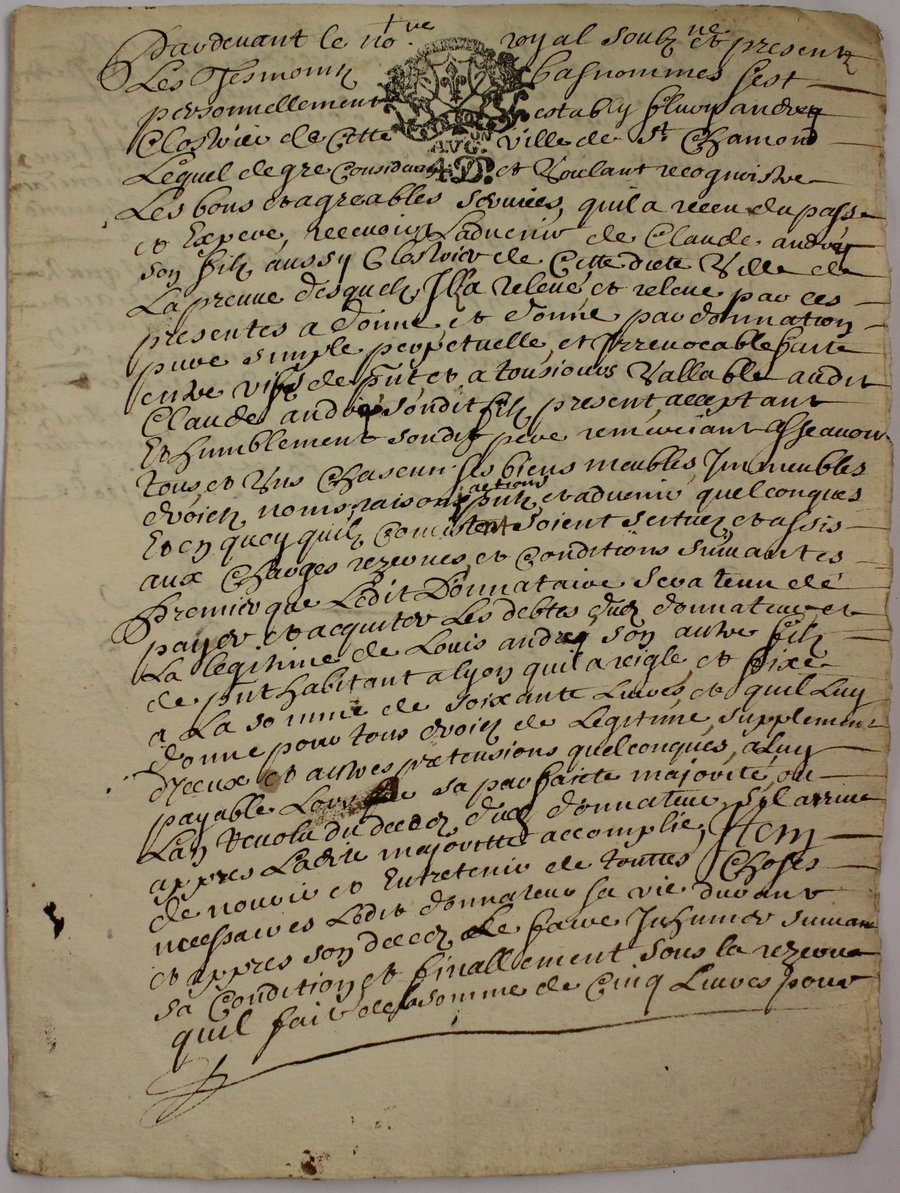 Pardevant le no.re royal soubz.ne et present
Les Tesmoins basnommes s'est
personnellement estably fleury andrez
Clostrier de Cette ville de St Chamond
AUG.
4D.
Lequel de gre Considerant et Voulant recognoistre
Les bons et agreables services, quil a receu du passe
et Espere, recevoir Ladvenir de Claude andréz
son filz aussy Clostrier de Cette dicte Ville de
La preuve desquelz Il la relevé et releve par ces
presentes a donné et donne par donnation
pure simple perpetuelle, et Irrevocable faite
entre vifs de put et a tousiours Vallable audit
Claude andréz sondit filz present, acceptant
Et humblement sondit pere remerciant Asseavoir
tous, et Uns Chascun ses biens meubles, Immeubles
droictz noms, raisons actions putz, et advenir quelconques
Et en quoy quilz Consistent soient scituez et assis
aux Charges rezerves, et Conditions suivantes
Premier que Ledit Donnataire sera tenu de
payer et acquiter Les debtes dud donnateur et
La legitime de Louis andréz son autre filz
de put habitant a lyon quil a reigle, et fixé
a La somme de soixante Livres, et quil Luy
donne pour tous droictz de Legitime, supplement
d'Iceux et autres pretensions quelconques, a Luy
payable Lors de sa parfaicte majorité, ou
Lan revolu du decez dud donnateur, sil arrive
appres Ladite majoritté accomplie, Item
de nourir et Entretenir de touttes Choses
necessaires Ledit donnateur sa vie durant
et appres son decez Le faire Inhumer suivant
sa Condition et finallement sous la rezerve
quil fait de la somme de Cinq Livres pour